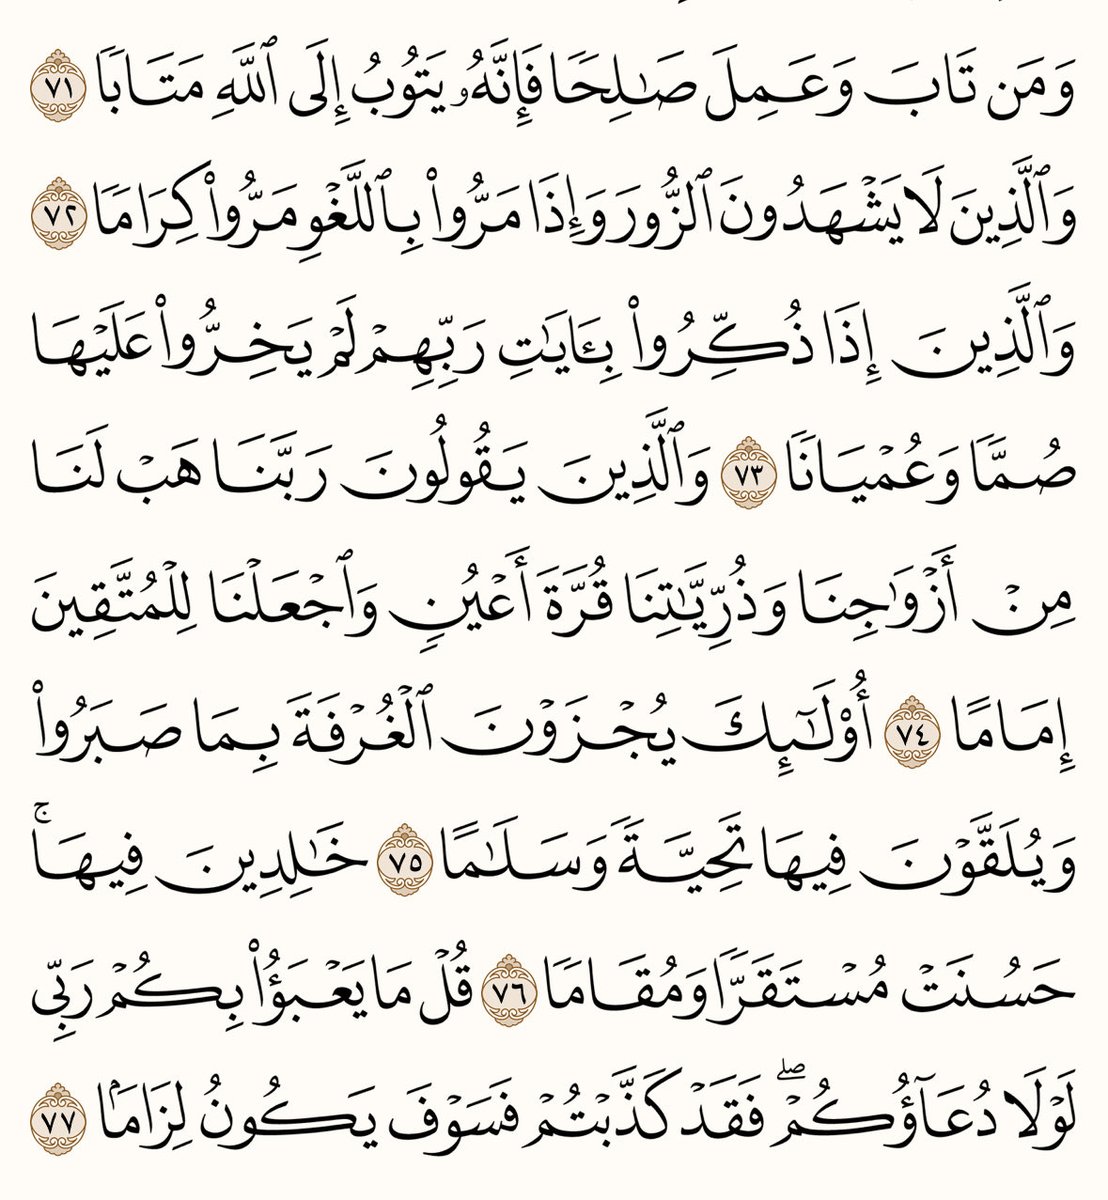 وَمَن تَابَ وَعَمِلَ صَٰلِحًا فَإِنَّهُۥ يَتُوبُ إِلَى ٱللَّهِ مَتَابًا ٧١
وَٱلَّذِينَ لَا يَشْهَدُونَ ٱلزُّورَ وَإِذَا مَرُّوا۟ بِٱللَّغْوِ مَرُّوا۟ كِرَامًا ٧٢
وَٱلَّذِينَ إِذَا ذُكِّرُوا۟ بِـَٔايَٰتِ رَبِّهِمْ لَمْ يَخِرُّوا۟ عَلَيْهَا
صُمًّا وَعُمْيَانًا ٧٣ وَٱلَّذِينَ يَقُولُونَ رَبَّنَا هَبْ لَنَا
مِنْ أَزْوَٰجِنَا وَذُرِّيَّٰتِنَا قُرَّةَ أَعْيُنٍ وَٱجْعَلْنَا لِلْمُتَّقِينَ
إِمَامًا ٧٤ أُو۟لَٰٓئِكَ يُجْزَوْنَ ٱلْغُرْفَةَ بِمَا صَبَرُوا۟
وَيُلَقَّوْنَ فِيهَا تَحِيَّةً وَسَلَٰمًا ٧٥ خَٰلِدِينَ فِيهَاۚ
حَسُنَتْ مُسْتَقَرًّا وَمُقَامًا ٧٦ قُلْ مَا يَعْبَؤُا۟ بِكُمْ رَبِّى
لَوْلَا دُعَآؤُكُمْۖ فَقَدْ كَذَّبْتُمْ فَسَوْفَ يَكُونُ لِزَامًۢا ٧٧